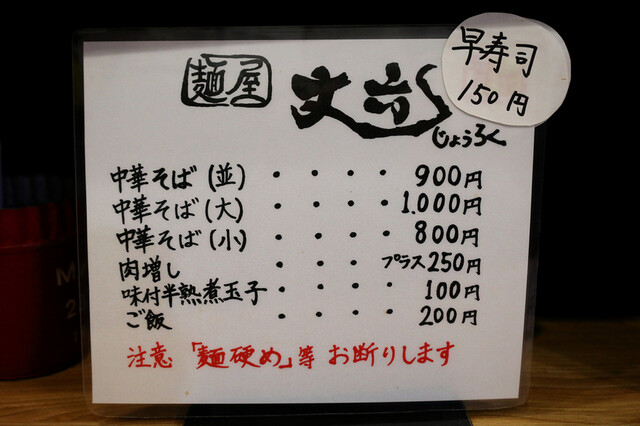 早寿司
150円
麺屋 丈六
じょうろく
中華そば(並)・・・・900円
中華そば(大)・・・・1.000円
中華そば(小)・・・・800円
肉増し・・・プラス250円
味付半熟煮玉子・・・・100円
ご飯・・・・200円
注意「麺硬め」等 お断りします